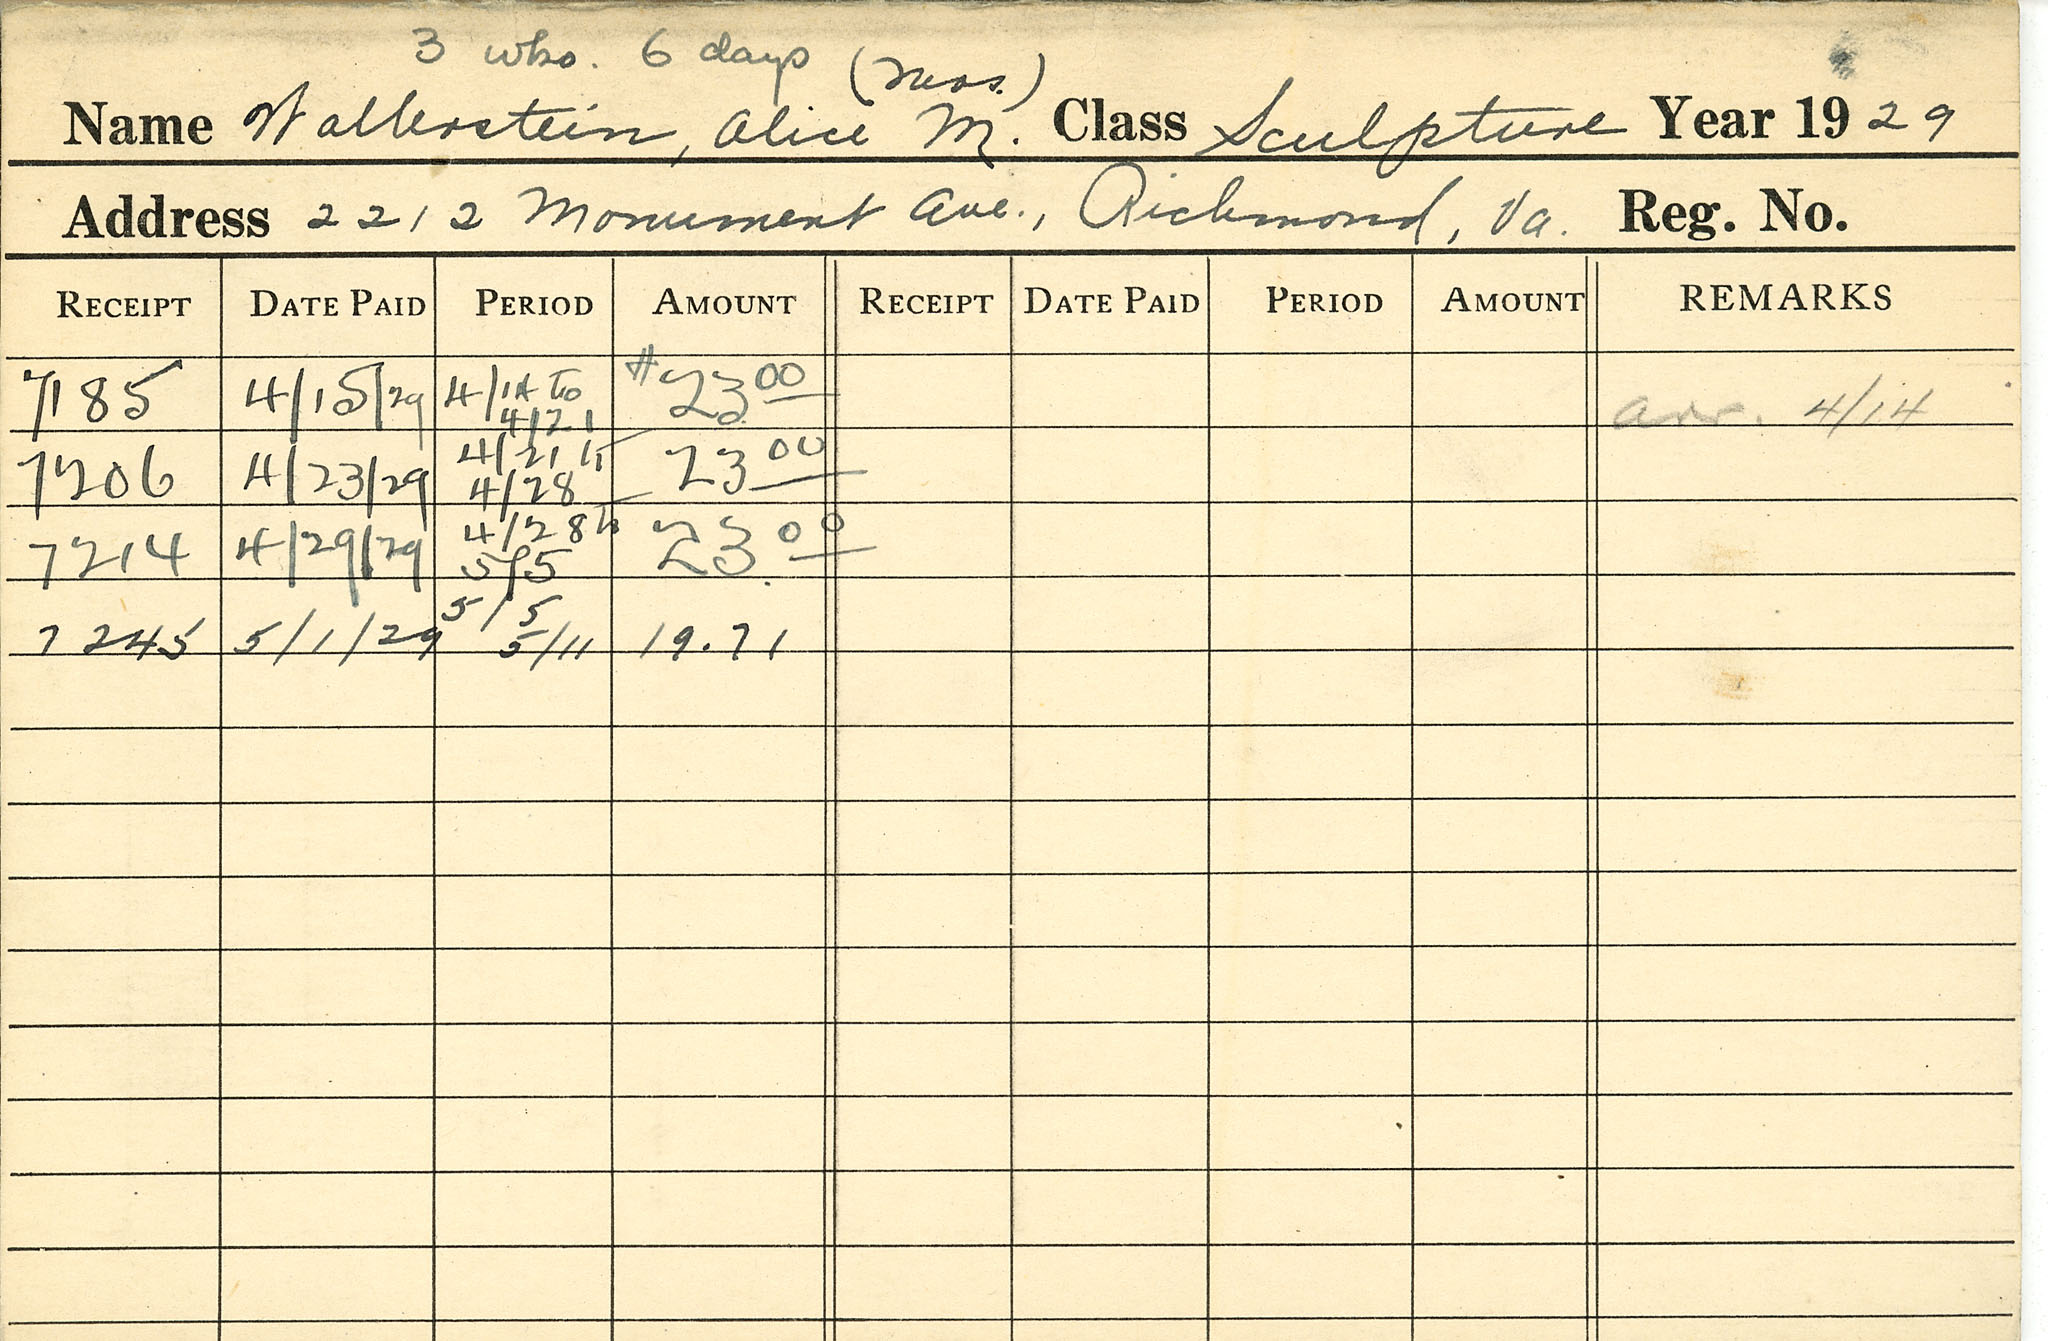 3 wks. 6 days (Mrs.)
Name Wallerstein, Alice M. Class Sculpture Year 1929
Address 2212 Monument Ave., Richmond, Va. Reg. No.
RECEIPT DATE PAID PERIOD AMOUNT RECEIPT DATE PAID PERIOD AMOUNT REMARKS
7185 4/15/29 4/14 to 4/21 $23.00 arr. 4/14
7206 4/23/29 4/21 to 4/28 23.00
7214 4/29/29 4/28 to 5/5 23.00
7245 5/1/29 5/5 5/11 19.71